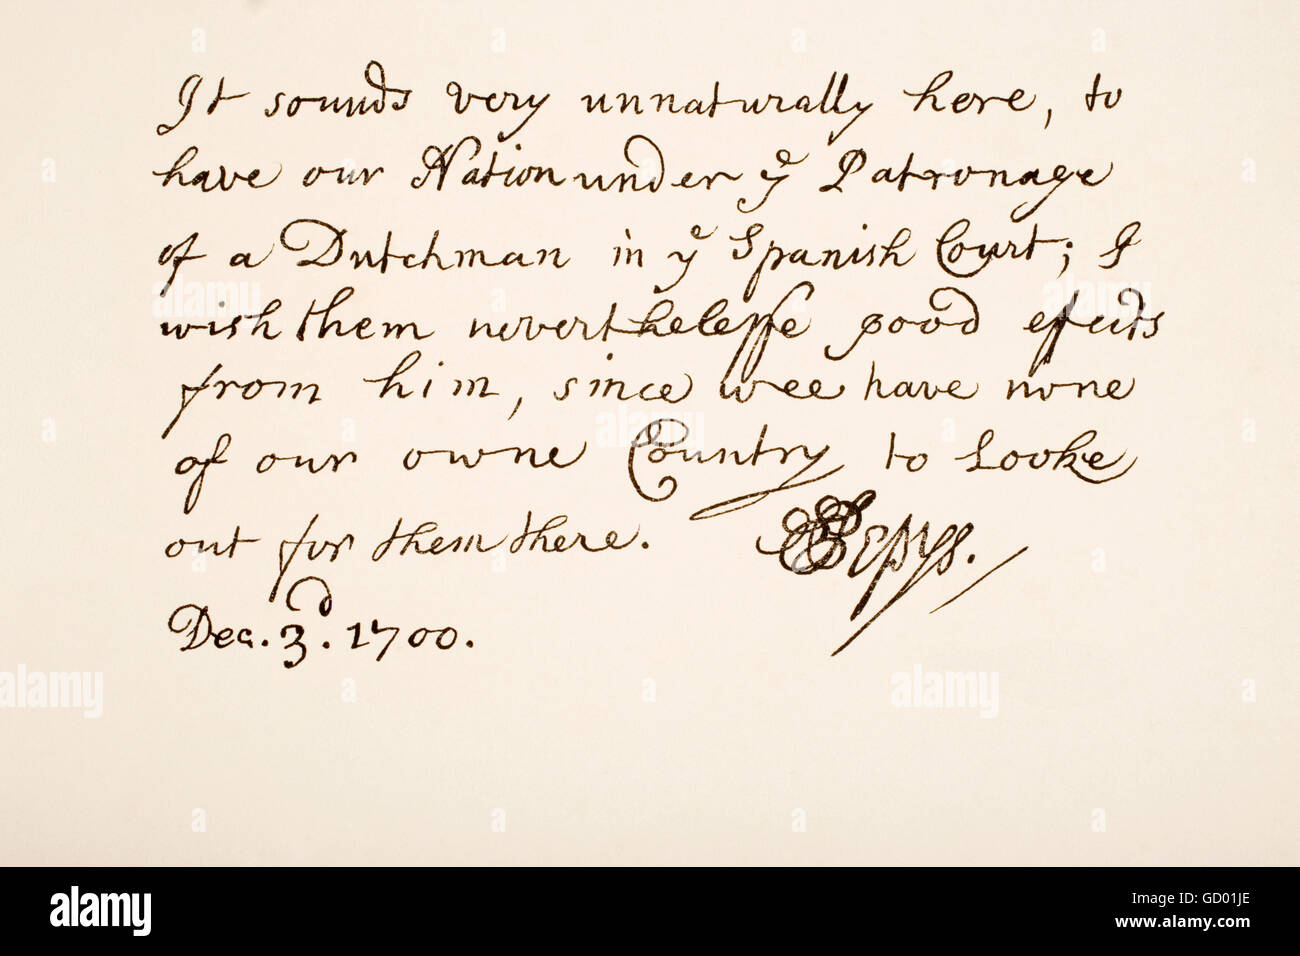 It sounds very unnaturally here, to
have our Nation under yᵉ Patronage
of a Dutchman in yᵉ Spanish Court; I
wish them neverthelesse good efects
from him, since wee have none
of our owne Country to Looke
out for them there. SPepys.
Dec. 3ᵈ. 1700.
alamy
alamy
alamy
alamy
Image ID: GD01JE
www.alamy.com